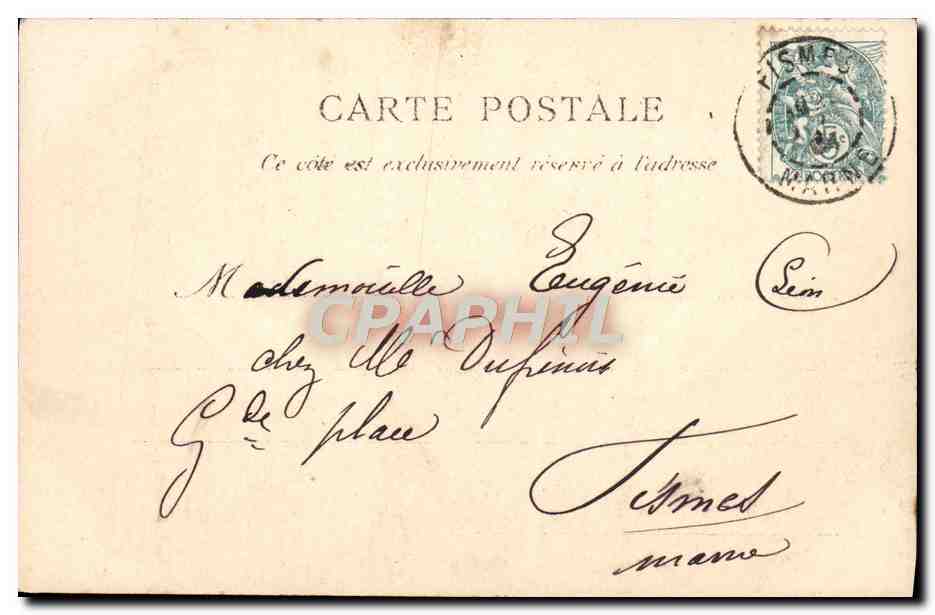 CARTE POSTALE
Ce côté est exclusivement réservé à l'adresse
FISMES
MARNE
5c
Mademoiselle Eugénie Léon
CPAPHIL
chez Mlle
Gde place
Fismes
marne